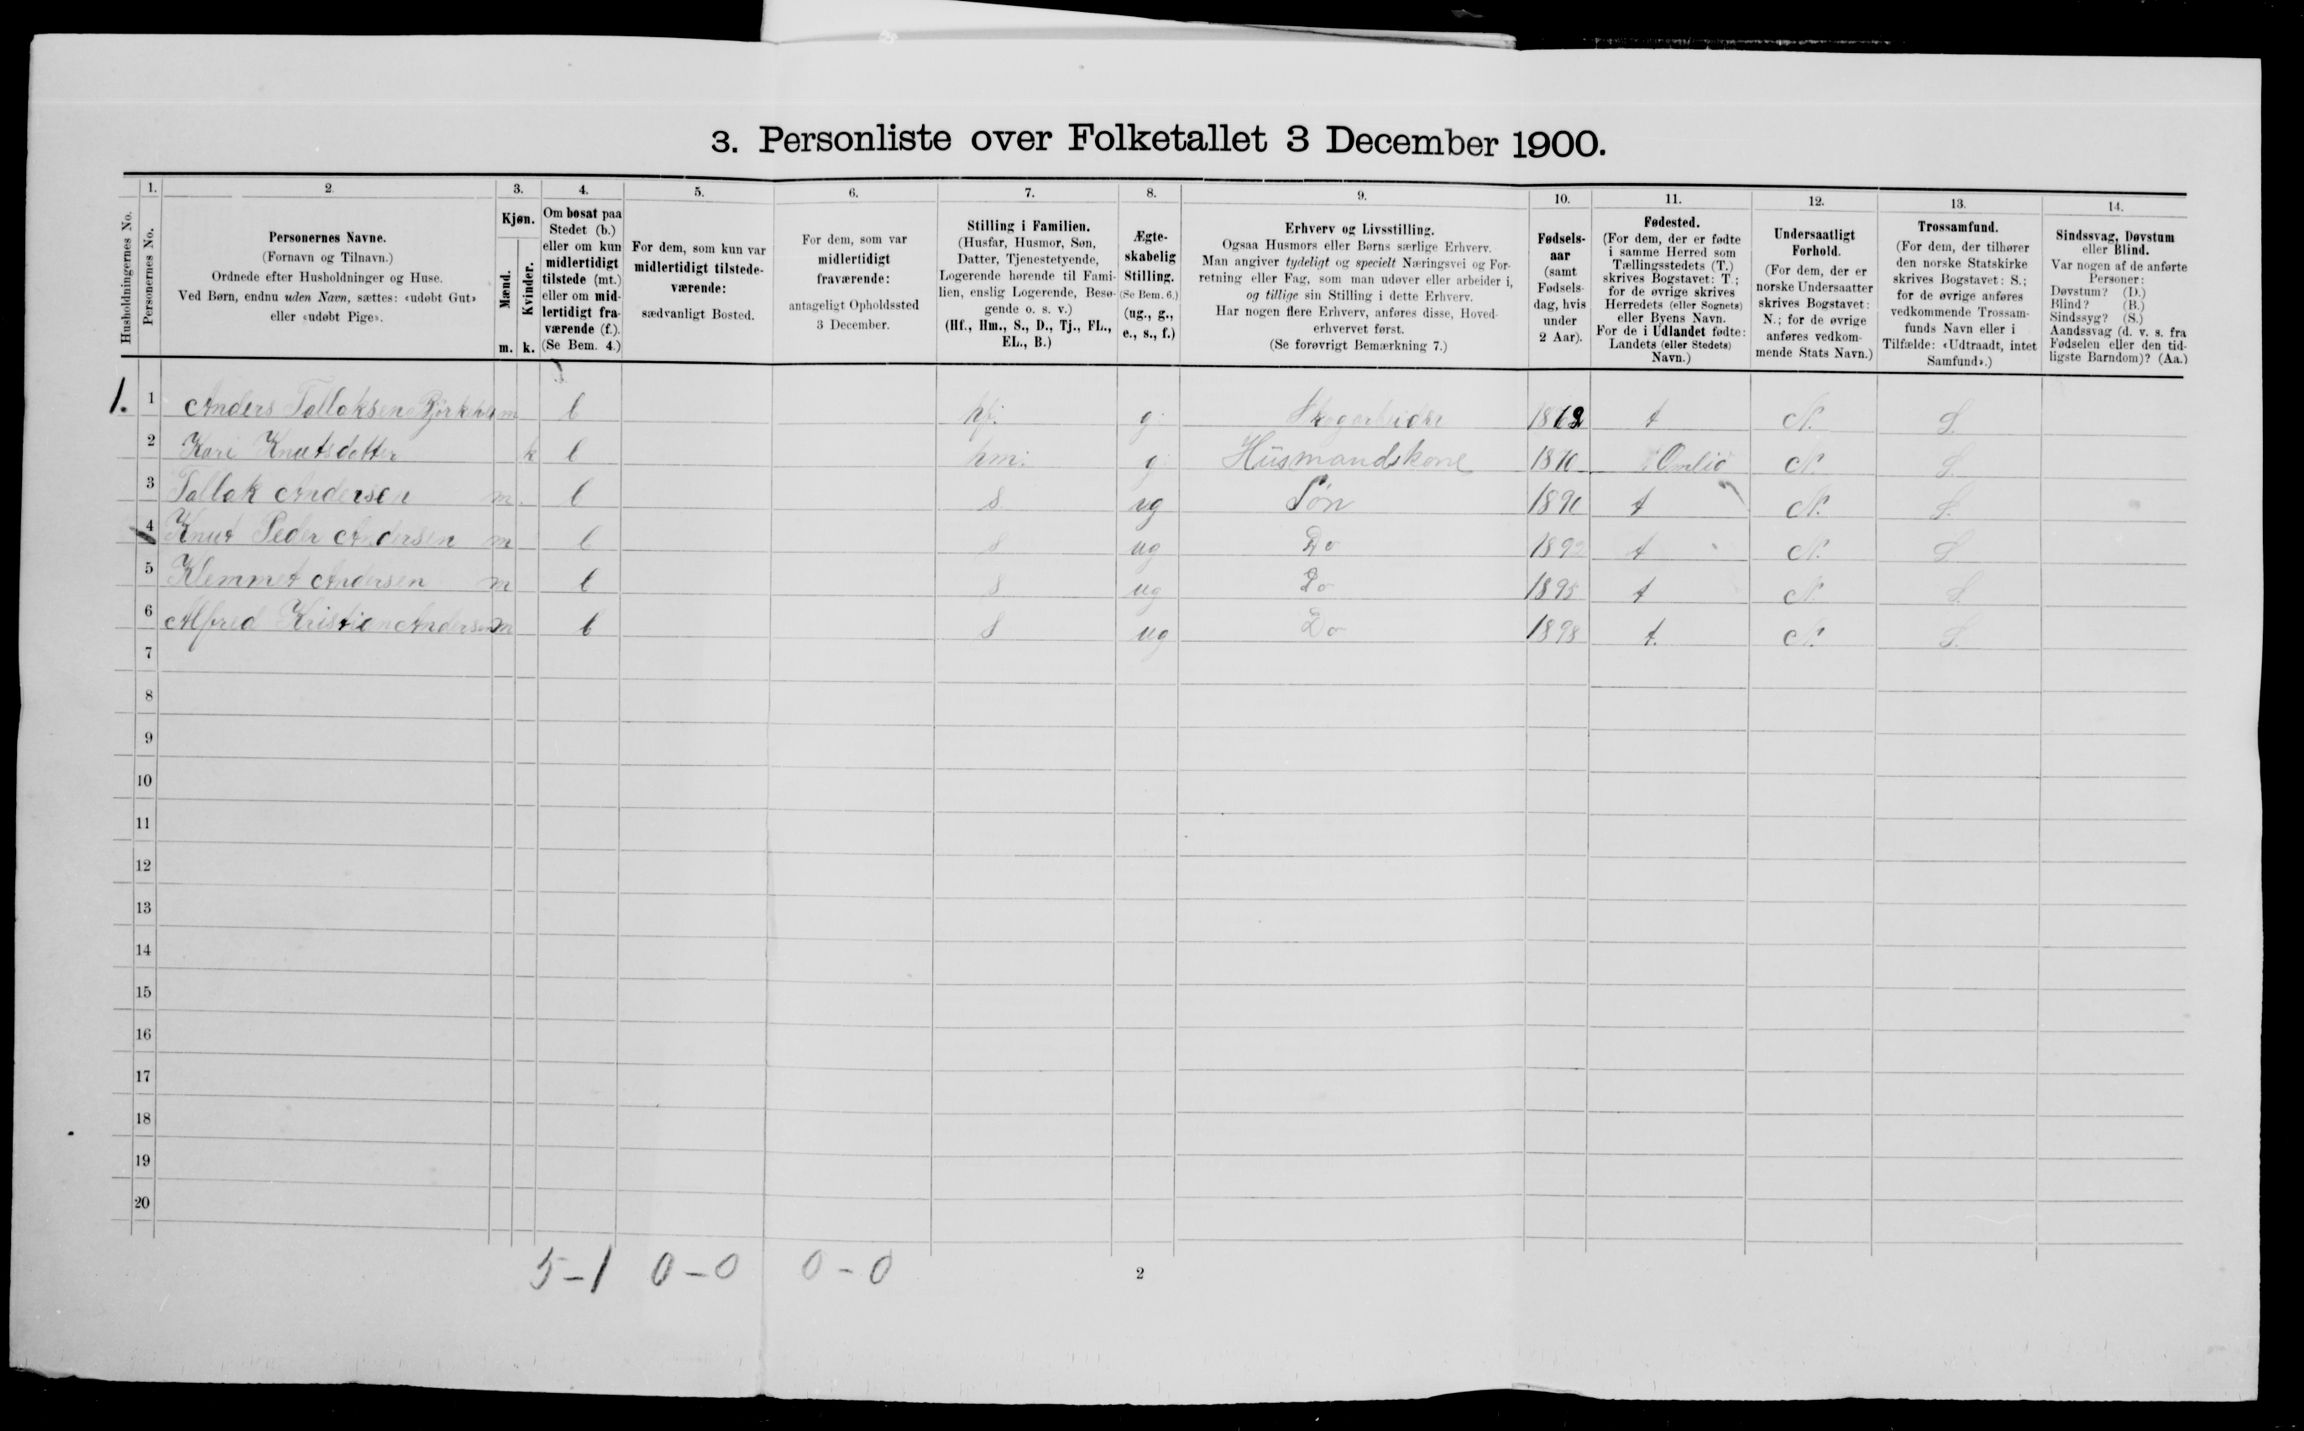 3. Personliste over Folketallet 3 December 1900.
1. 2. 3. 4. 5. 6. 7. 8. 9. 10. 11. 12. 13. 14.
Husholdningernes No.
Personernes No.
Personernes Navne.
(Fornavn og Tilnavn.)
Ordnede efter Husholdninger og Huse.
Ved Børn, endnu uden Navn, sættes: «udøbt Gut»
eller «udøbt Pige».
Kjøn.
Mænd.
Kvinder.
m. k.
Om bosat paa
Stedet (b.)
eller om kun
midlertidigt
tilstede (mt.)
eller om mid-
lertidigt fra-
værende (f.).
(Se Bem. 4.)
For dem, som kun var
midlertidigt tilstede-
værende:
sædvanligt Bosted.
For dem, som var
midlertidigt
fraværende:
antageligt Opholdssted
3 December.
Stilling i Familien.
(Husfar, Husmor, Søn,
Datter, Tjenestetyende,
Logerende hørende til Fami-
lien, enslig Logerende, Besø-
gende o. s. v.)
(Hf., Hm., S., D., Tj., FL.,
EL., B.)
Ægte-
skabelig
Stilling.
(Se Bem. 6.)
(ug., g.,
e., s., f.)
Erhverv og Livsstilling.
Ogsaa Husmors eller Børns særlige Erhverv.
Man angiver tydeligt og specielt Næringsvei og For-
retning eller Fag, som man udøver eller arbeider i,
og tillige sin Stilling i dette Erhverv.
Har nogen flere Erhverv, anføres disse, Hoved-
erhvervet først.
(Se forøvrigt Bemærkning 7.)
Fødsels-
aar
(samt
Fødsels-
dag, hvis
under
2 Aar).
Fødested.
(For dem, der er fødte
i samme Herred som
Tællingsstedets (T.)
skrives Bogstavet: T.;
for de øvrige skrives
Herredets (eller Sognets)
eller Byens Navn.
For de i Udlandet fødte:
Landets (eller Stedets)
Navn.)
Undersaatligt
Forhold.
(For dem, der er
norske Undersaatter
skrives Bogstavet:
N.; for de øvrige
anføres vedkom-
mende Stats Navn.)
Trossamfund.
(For dem, der tilhører
den norske Statskirke
skrives Bogstavet: S.;
for de øvrige anføres
vedkommende Trossam-
funds Navn eller i
Tilfælde: «Udtraadt, intet
Samfund».)
Sindssvag, Døvstum
eller Blind.
Var nogen af de anførte
Personer:
Døvstum? (D.)
Blind? (B.)
Sindssyg? (S.)
Aandssvag (d. v. s. fra
Fødselen eller den tid-
ligste Barndom)? (Aa.)
1. 1 Anders Tallaksen m b hf. g. Skogarbeider 1862 t N. S.
2 Kari Knutsdatter k b hm. g. Husmandskone 1870 Omlid N. S.
3 Tallak Andersen m. b s ug Søn 1890 t N. S.
4 Knut Peder Andersen m b s ug Do 1892 t N. S.
5 Klemmet Andersen m b s ug Do 1895 t N. S.
6 Alfred Kristian Andersen m b s ug Do 1898 t. N. S.
7
8
9
10
11
12
13
14
15
16
17
18
19
20
5-1 0-0 0-0
2